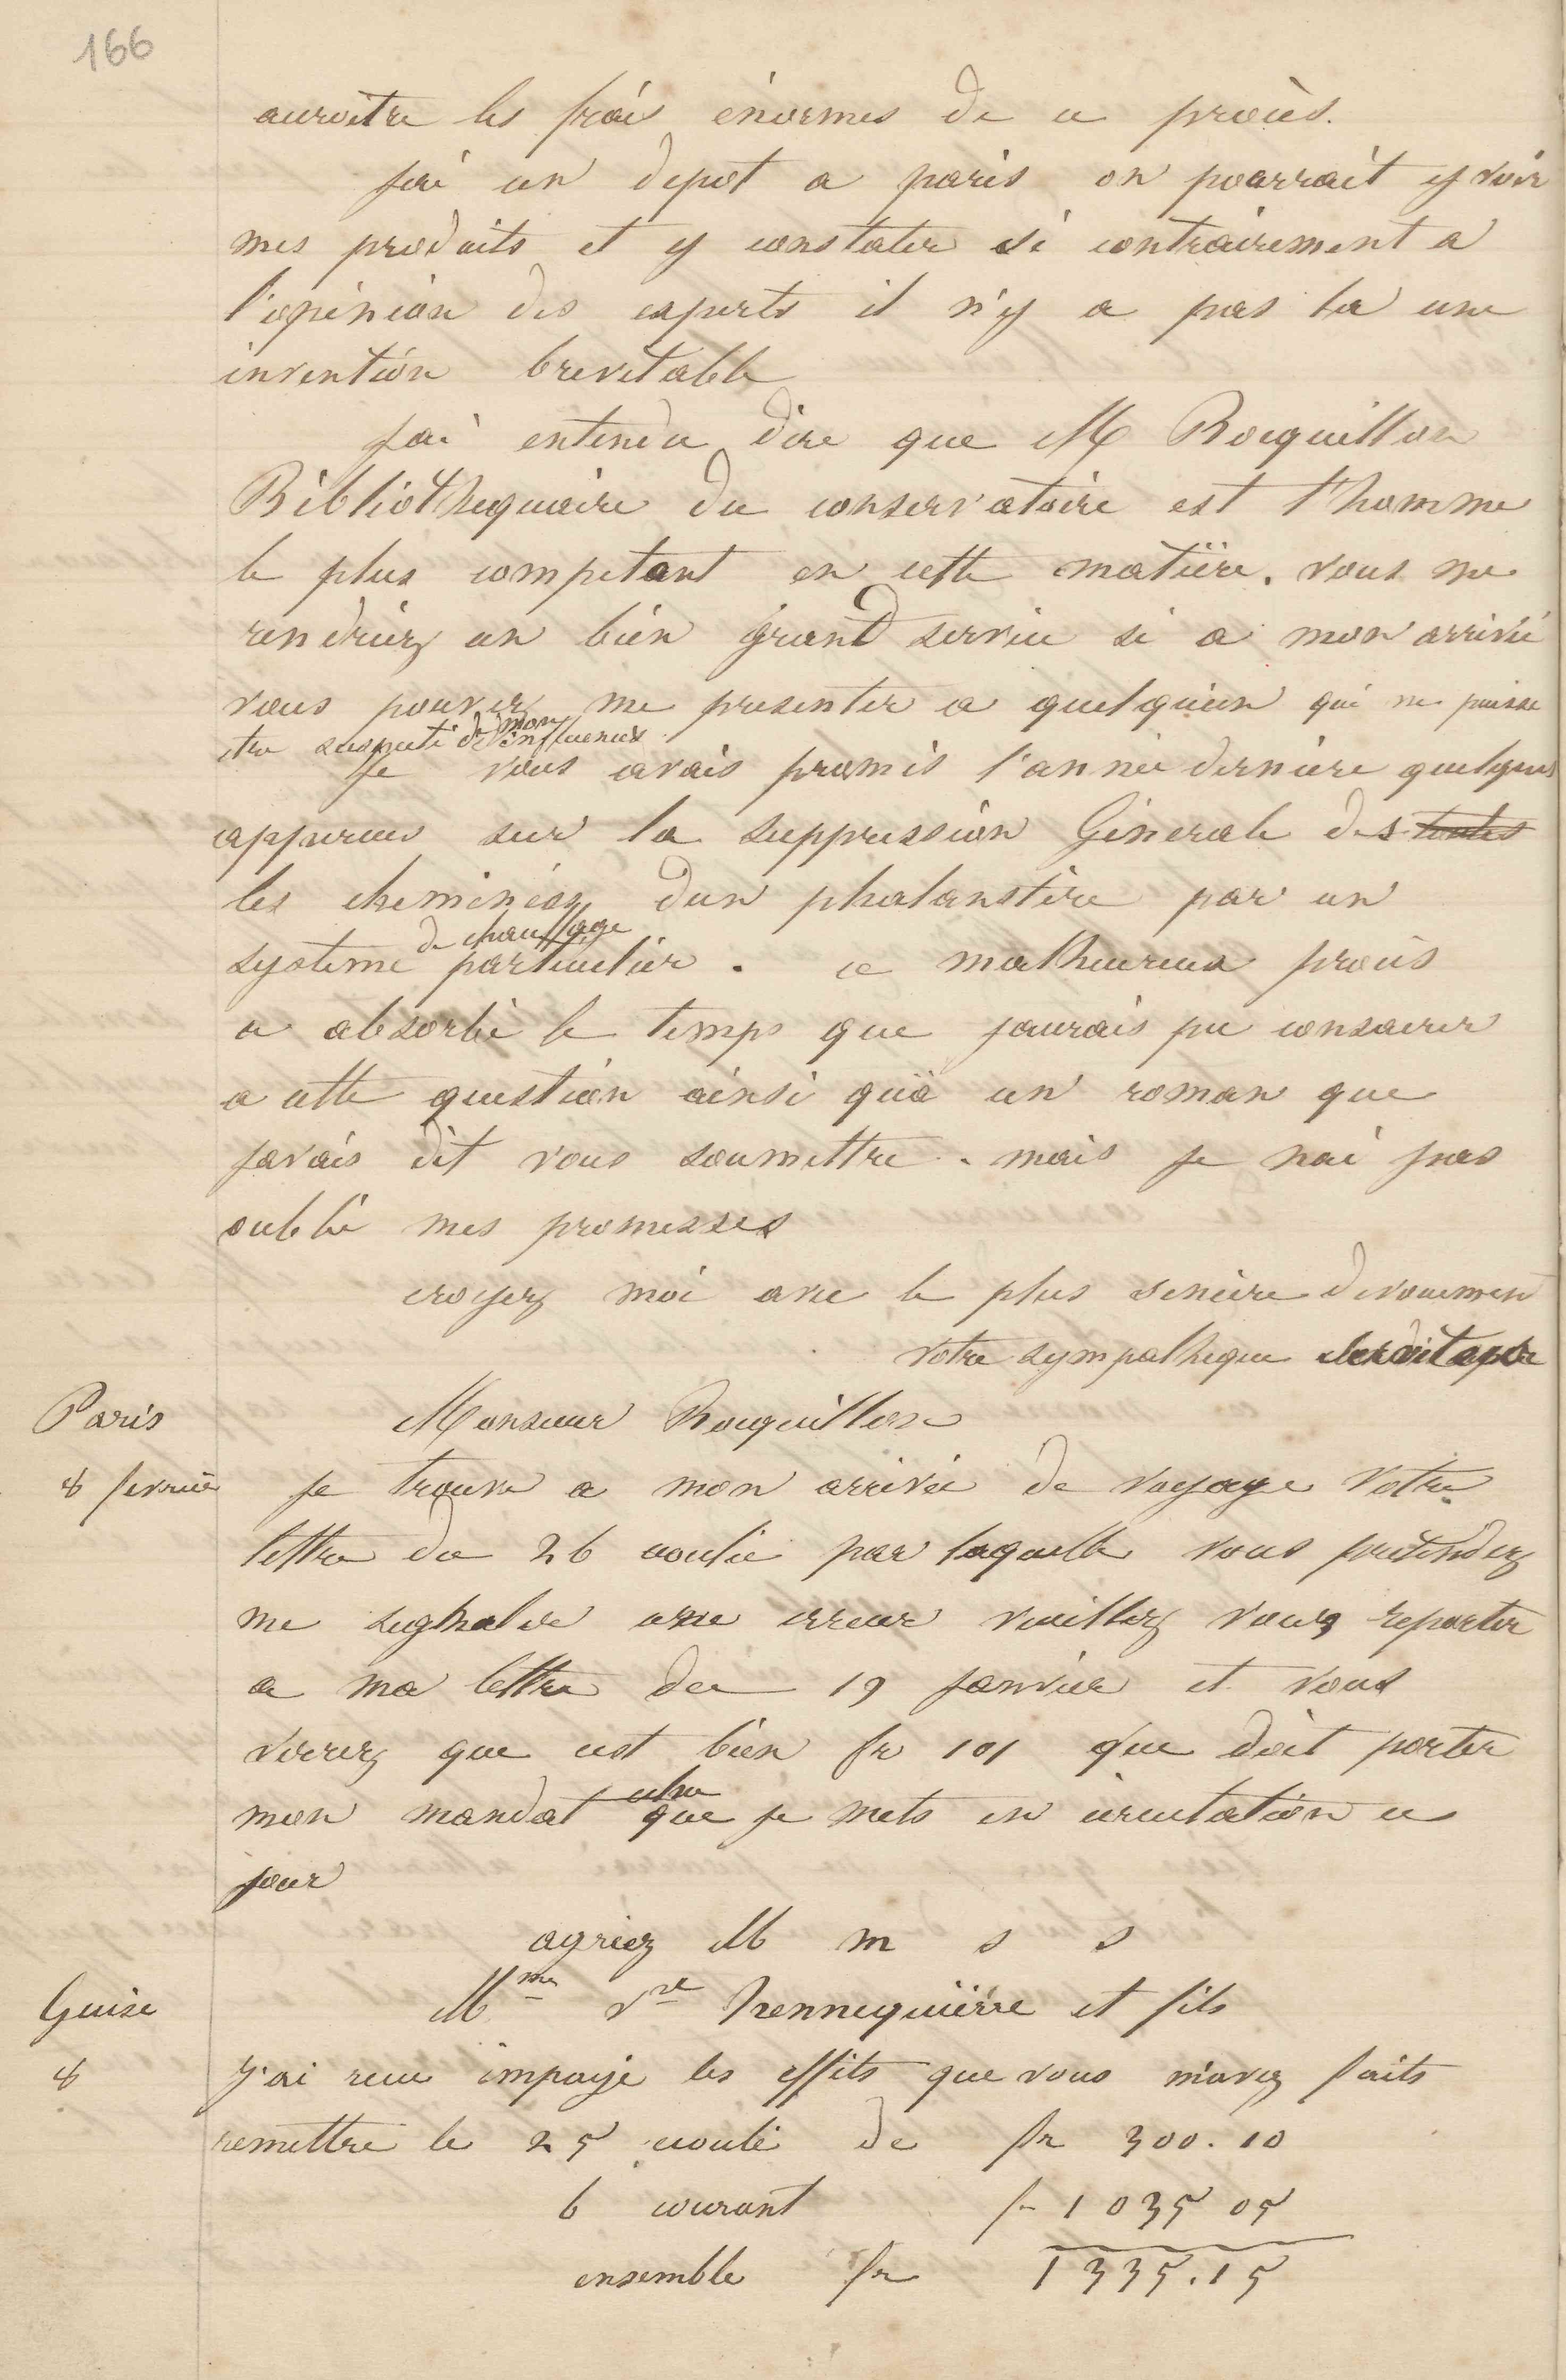 166
accroitre les frais énormes de ce procès.
jai un depot a paris on pourrait y voir
mes produits et y constater si contrairement a
l'opinion des experts il n'y a pas la une
invention brevetable
jai entendu dire que M Rocquillon
Bibliothequaire du conservatoire est l'homme
le plus competant en cette matière. vous me
rendriez un bien grand service si a mon arrivé
vous pouvez me presenter a quelqu'un qui ne puisse
etre suspecté de mon influence
je vous avais promis l'année derniere quelques
appercus sur la suppression Génerale des toutes
les cheminées dun phalanstère par un
de chauffage
systeme particulier. ce malheureux procès
a absorbé le temps que jaurais pu consacrer
a cette question ainsi quà un roman que
javais dit vous soumettre. mais je nai pas
oublié mes promesses
croyez moi avec le plus sincère devouement
votre sympathique
Paris
Monsieur Rocquillon
8 fevrier je trouve a mon arrivée de voyage votre
lettre du 26 écoulé par laquelle vous pretendez
me signaler une erreur veuillez vous reporter
a ma lettre du 19 janvier et vous
verrez que cest bien fr 101 que doit porter
mon mandat que je mets en circulation ce
jour
agréez M m s s
Guise
Mme Vve hennequière et fils
8
J'ai recu impayé les effets que vous m'avez faits
remettre le 25 écoulé de fr 300.10
6 courant fr 1035 05
ensemble fr 1335.15